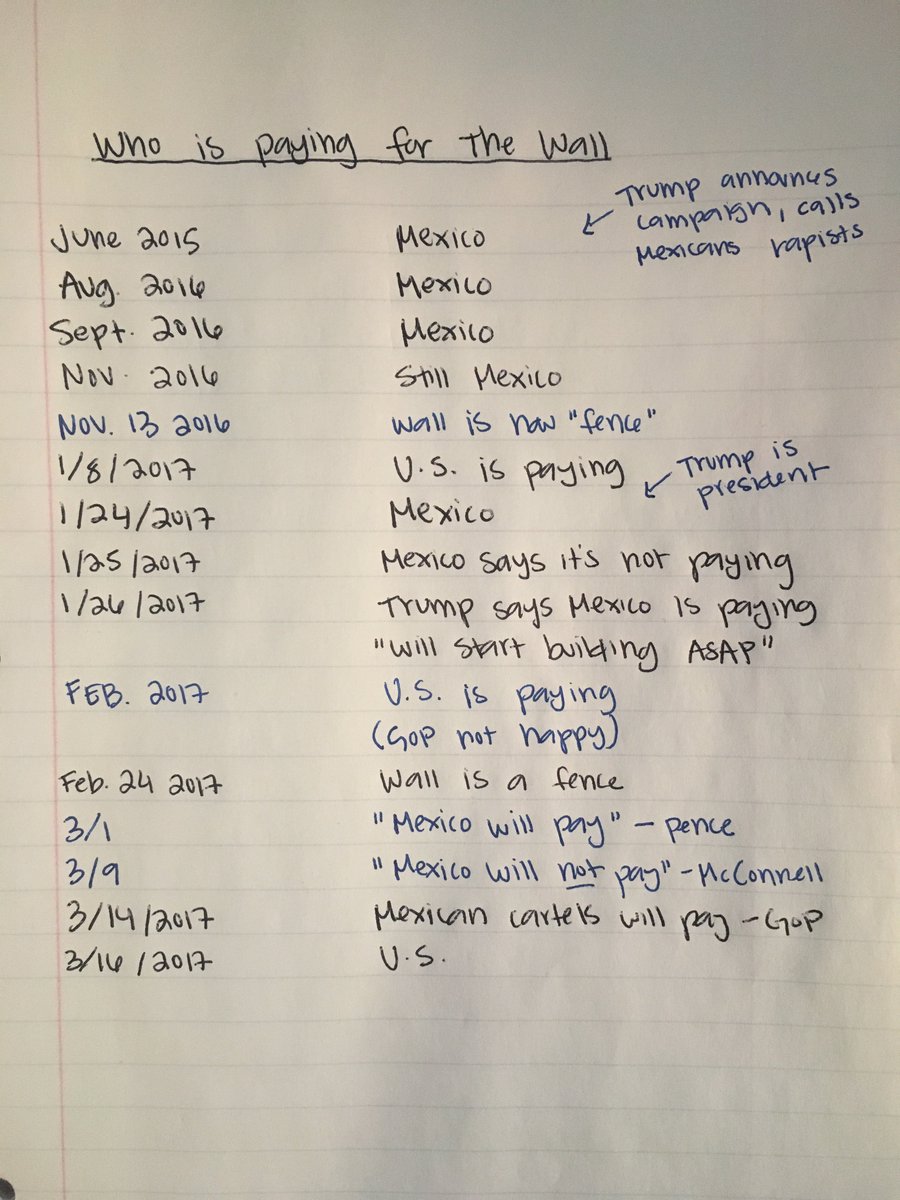 Who is paying for the Wall
Trump announes
campaign, calls
Mexicans rapists
June 2015 Mexico
Aug. 2016 Mexico
Sept. 2016 Mexico
Nov. 2016 Still Mexico
Nov. 13 2016 Wall is now "fence"
1/8/2017 U.S. is paying
Trump is
president
1/24/2017 Mexico
1/25/2017 Mexico says it's not paying
1/26/2017 Trump says Mexico is paying
"will start building ASAP"
FEB. 2017 U.S. is paying
(GOP not happy)
Feb. 24 2017 Wall is a fence
3/1 "Mexico will pay" - pence
3/9 "Mexico will not pay" - McConnell
3/14/2017 Mexican cartels will pay - GOP
3/16/2017 U.S.